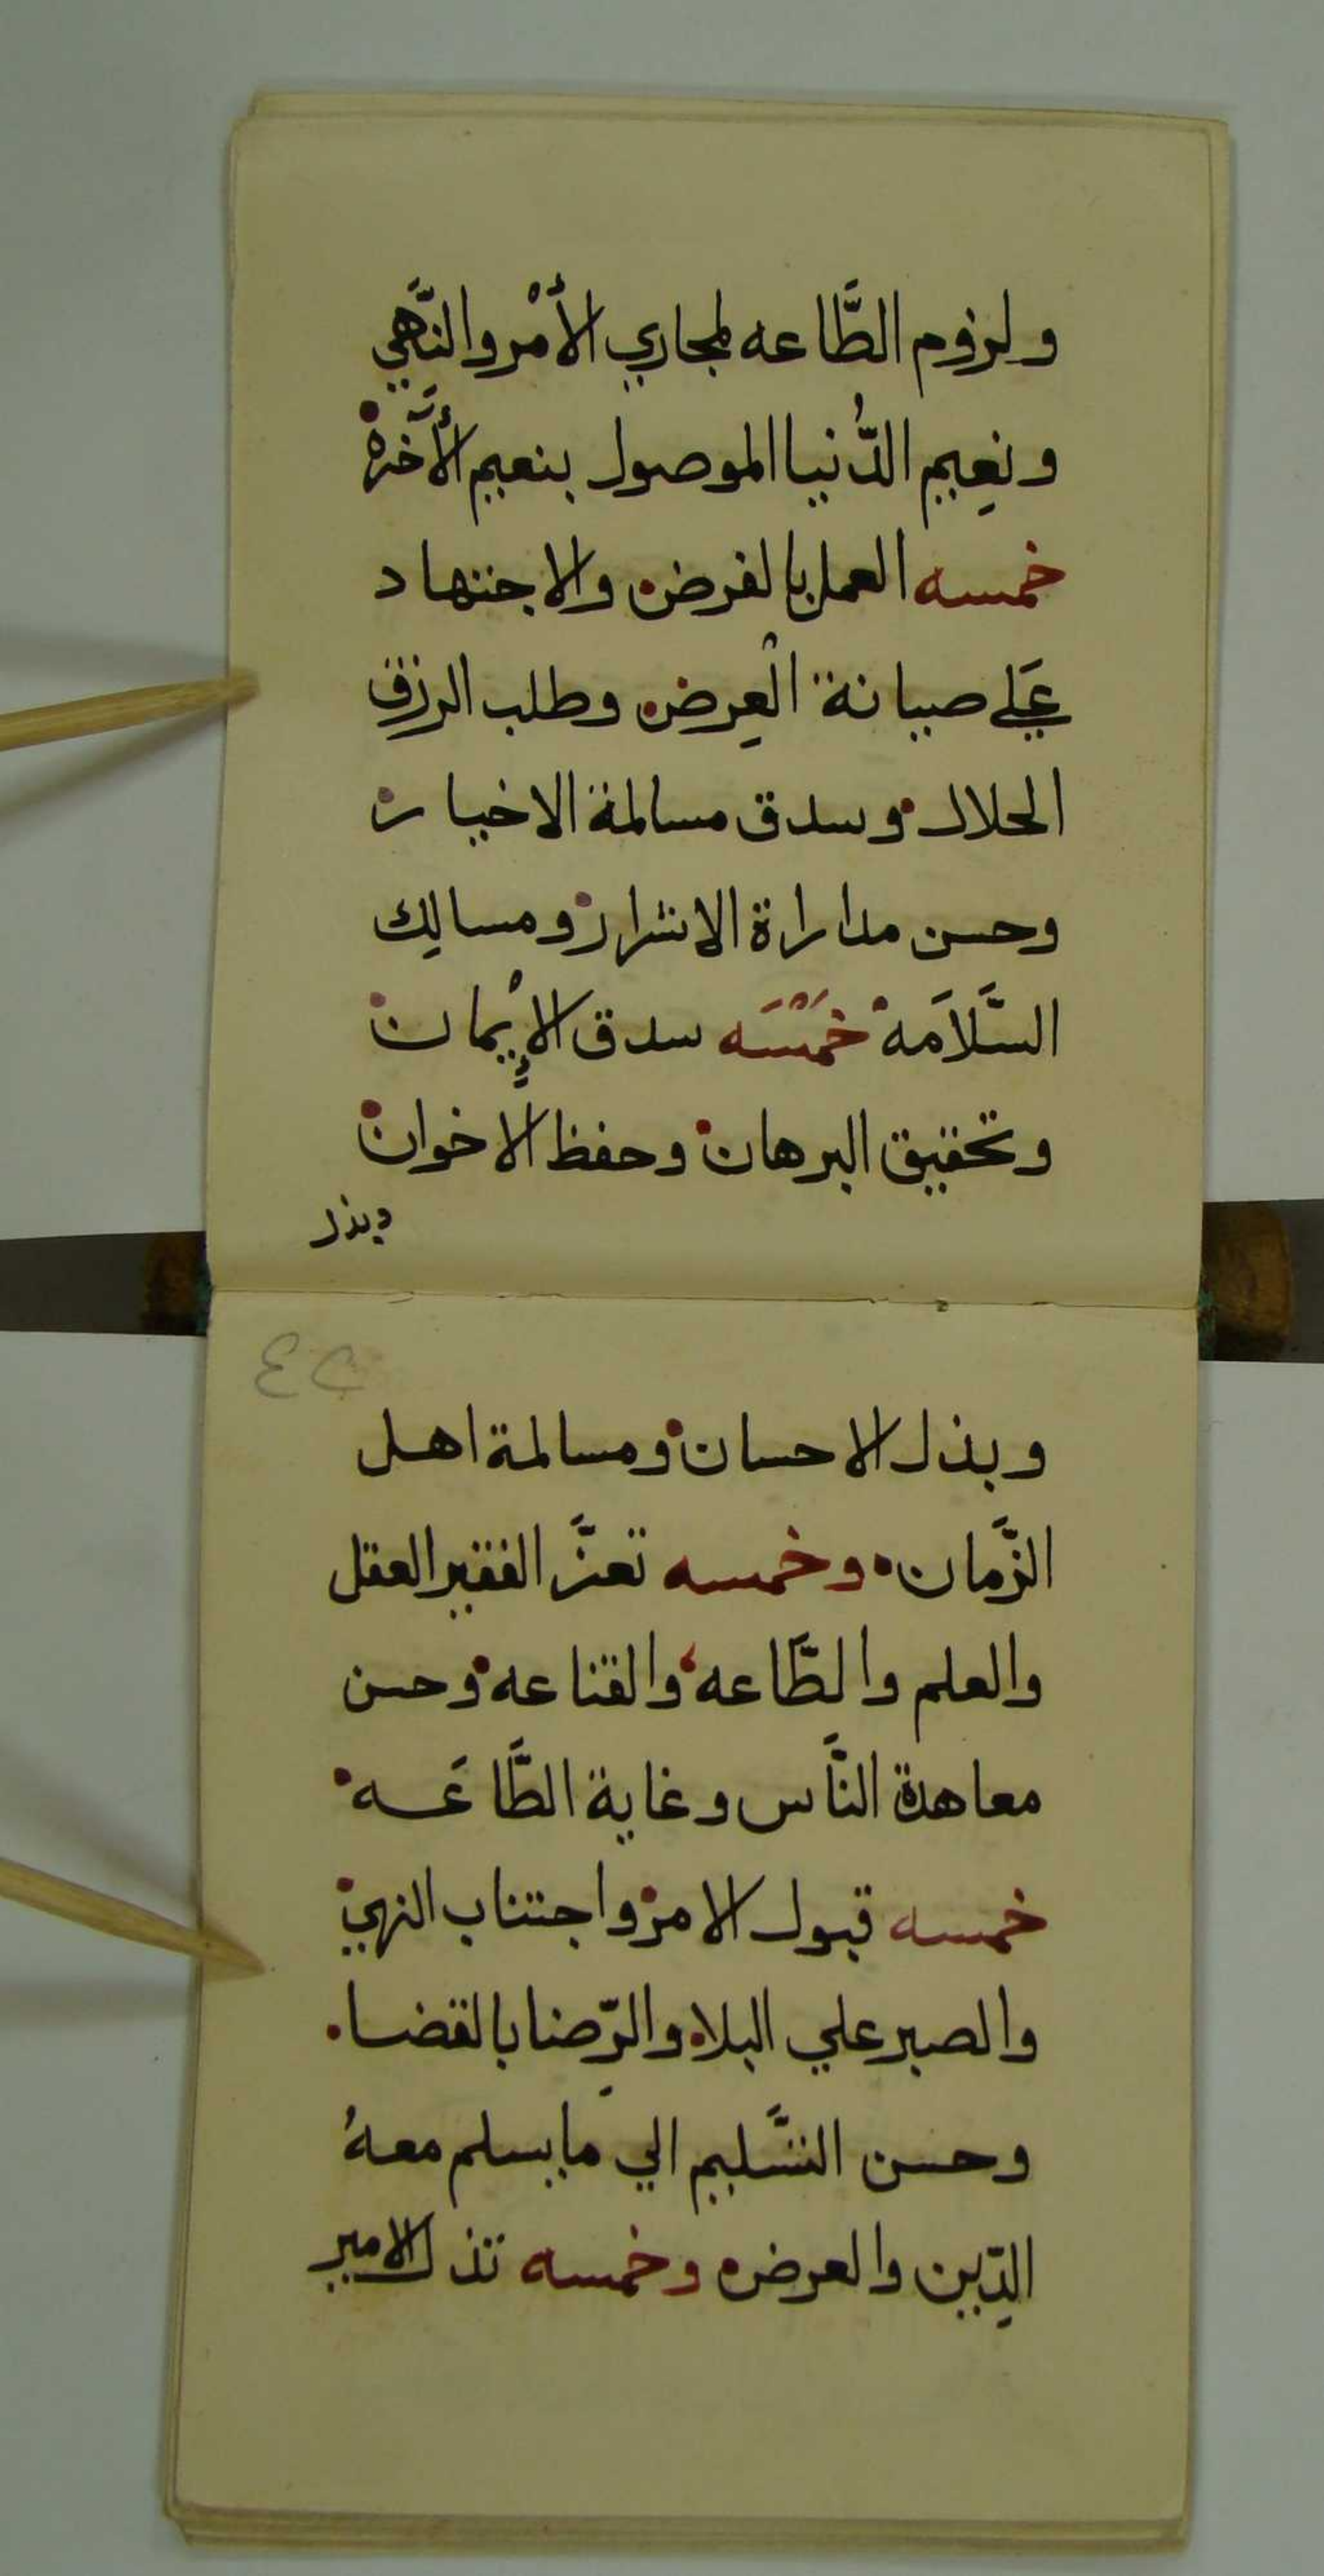 ولزوم الطَّاعه لمجاري الأمْر والنَّهي
ونعِيم الدُّنيا الموصول بنعيم الأَخره
خمسه العمل بالفرض والاجتهاد
عَلي صيانة الْعِرض وطلب الرزق
الحلال وسدق مسالمة الاخيار
وحسن مداراة الاشرار ومسالِك
السَّلاَمه خَمْسَه سدق الاِيْمان
وتحقيق البرهان وحفظ الاخوان
وبذل
٤٢
وبذل الاحسان ومسالمة اهل
الزَّمان وخمسه تعزَّ الفقير العقل
والعلم والطَّاعه والقناعه وحسن
معاهدة النَّاس وغاية الطَّاعَه
خمسه قبول الامر واجتناب النهي
والصبر علي البلا والرِّضا بالقضا
وحسن التسَّليم الي ما يسلم معهُ
الدِّين والعرض وخمسه تذل الامير